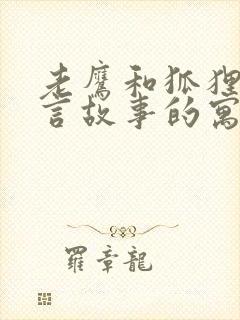 老鹰和狐狸
言故事的寓
羅章龍